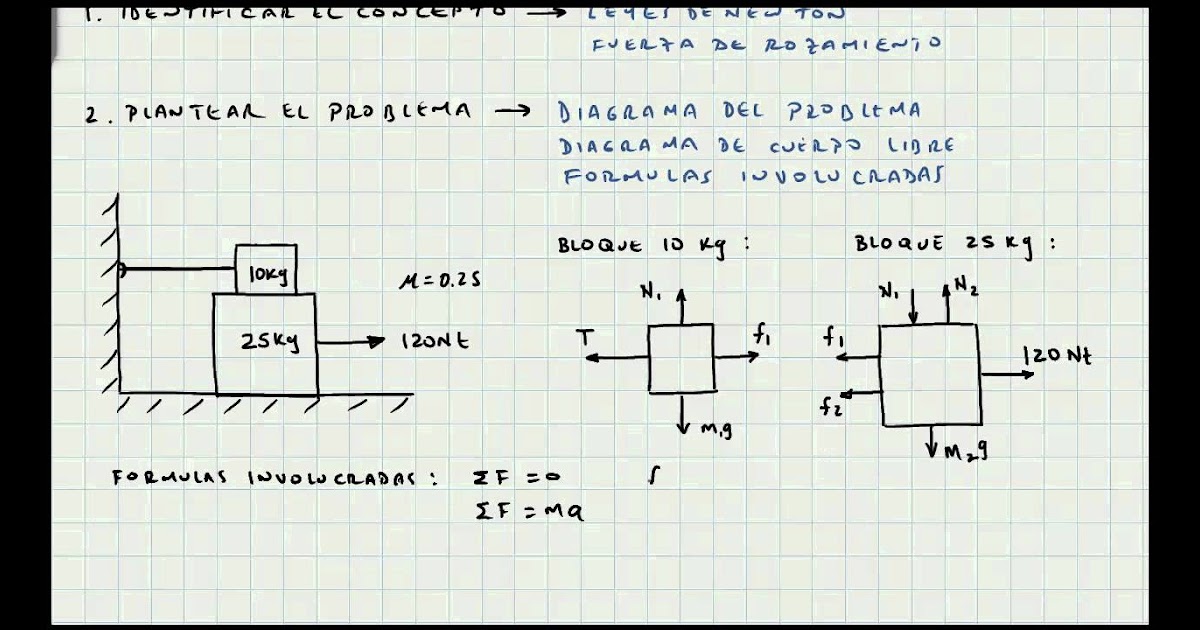 1. IDENTIFICAR EL CONCEPTO → LEYES DE NEWTON
FUERZA DE ROZAMIENTO
2. PLANTEAR EL PROBLEMA → DIAGRAMA DEL PROBLEMA
DIAGRAMA DE CUERPO LIBRE
FORMULAS INVOLUCRADAS
BLOQUE 10 Kg :
BLOQUE 25 Kg :
10Kg
M = 0.25
25Kg
120Nt
N₁
T
f₁
M₁g
N₁
N₂
f₁
120 Nt
f₂
M₂g
FORMULAS INVOLUCRADAS : ΣF = 0
f
ΣF = Ma